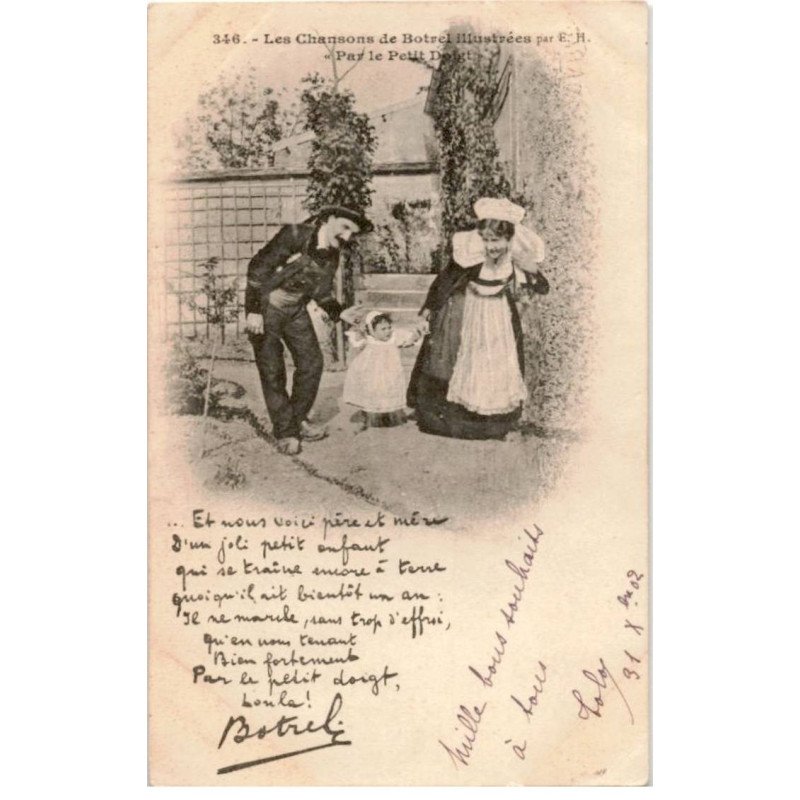 346. - Les Chansons de Botrel illustrées par E. H.
« Par le Petit Doigt »
... Et nous voici père et mère
D'un joli petit enfant
qui se traîne encore à terre
quoiqu'il ait bientôt un an :
Il ne marche, sans trop d'effroi,
qu'en nous tenant
Bien fortement
Par le petit doigt,
Lonla !
Botrel
Mille bons souhaits
à tous
31 Xbre 02